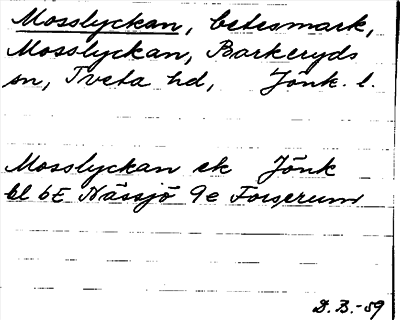 Mosslyckan, betesmark,
Mosslyckan, Barkeryds
sn, Tveta hd, Jönk. l.
Mosslyckan ek Jönk
bl 6E Nässjö 9e Forserum
D.B.-59